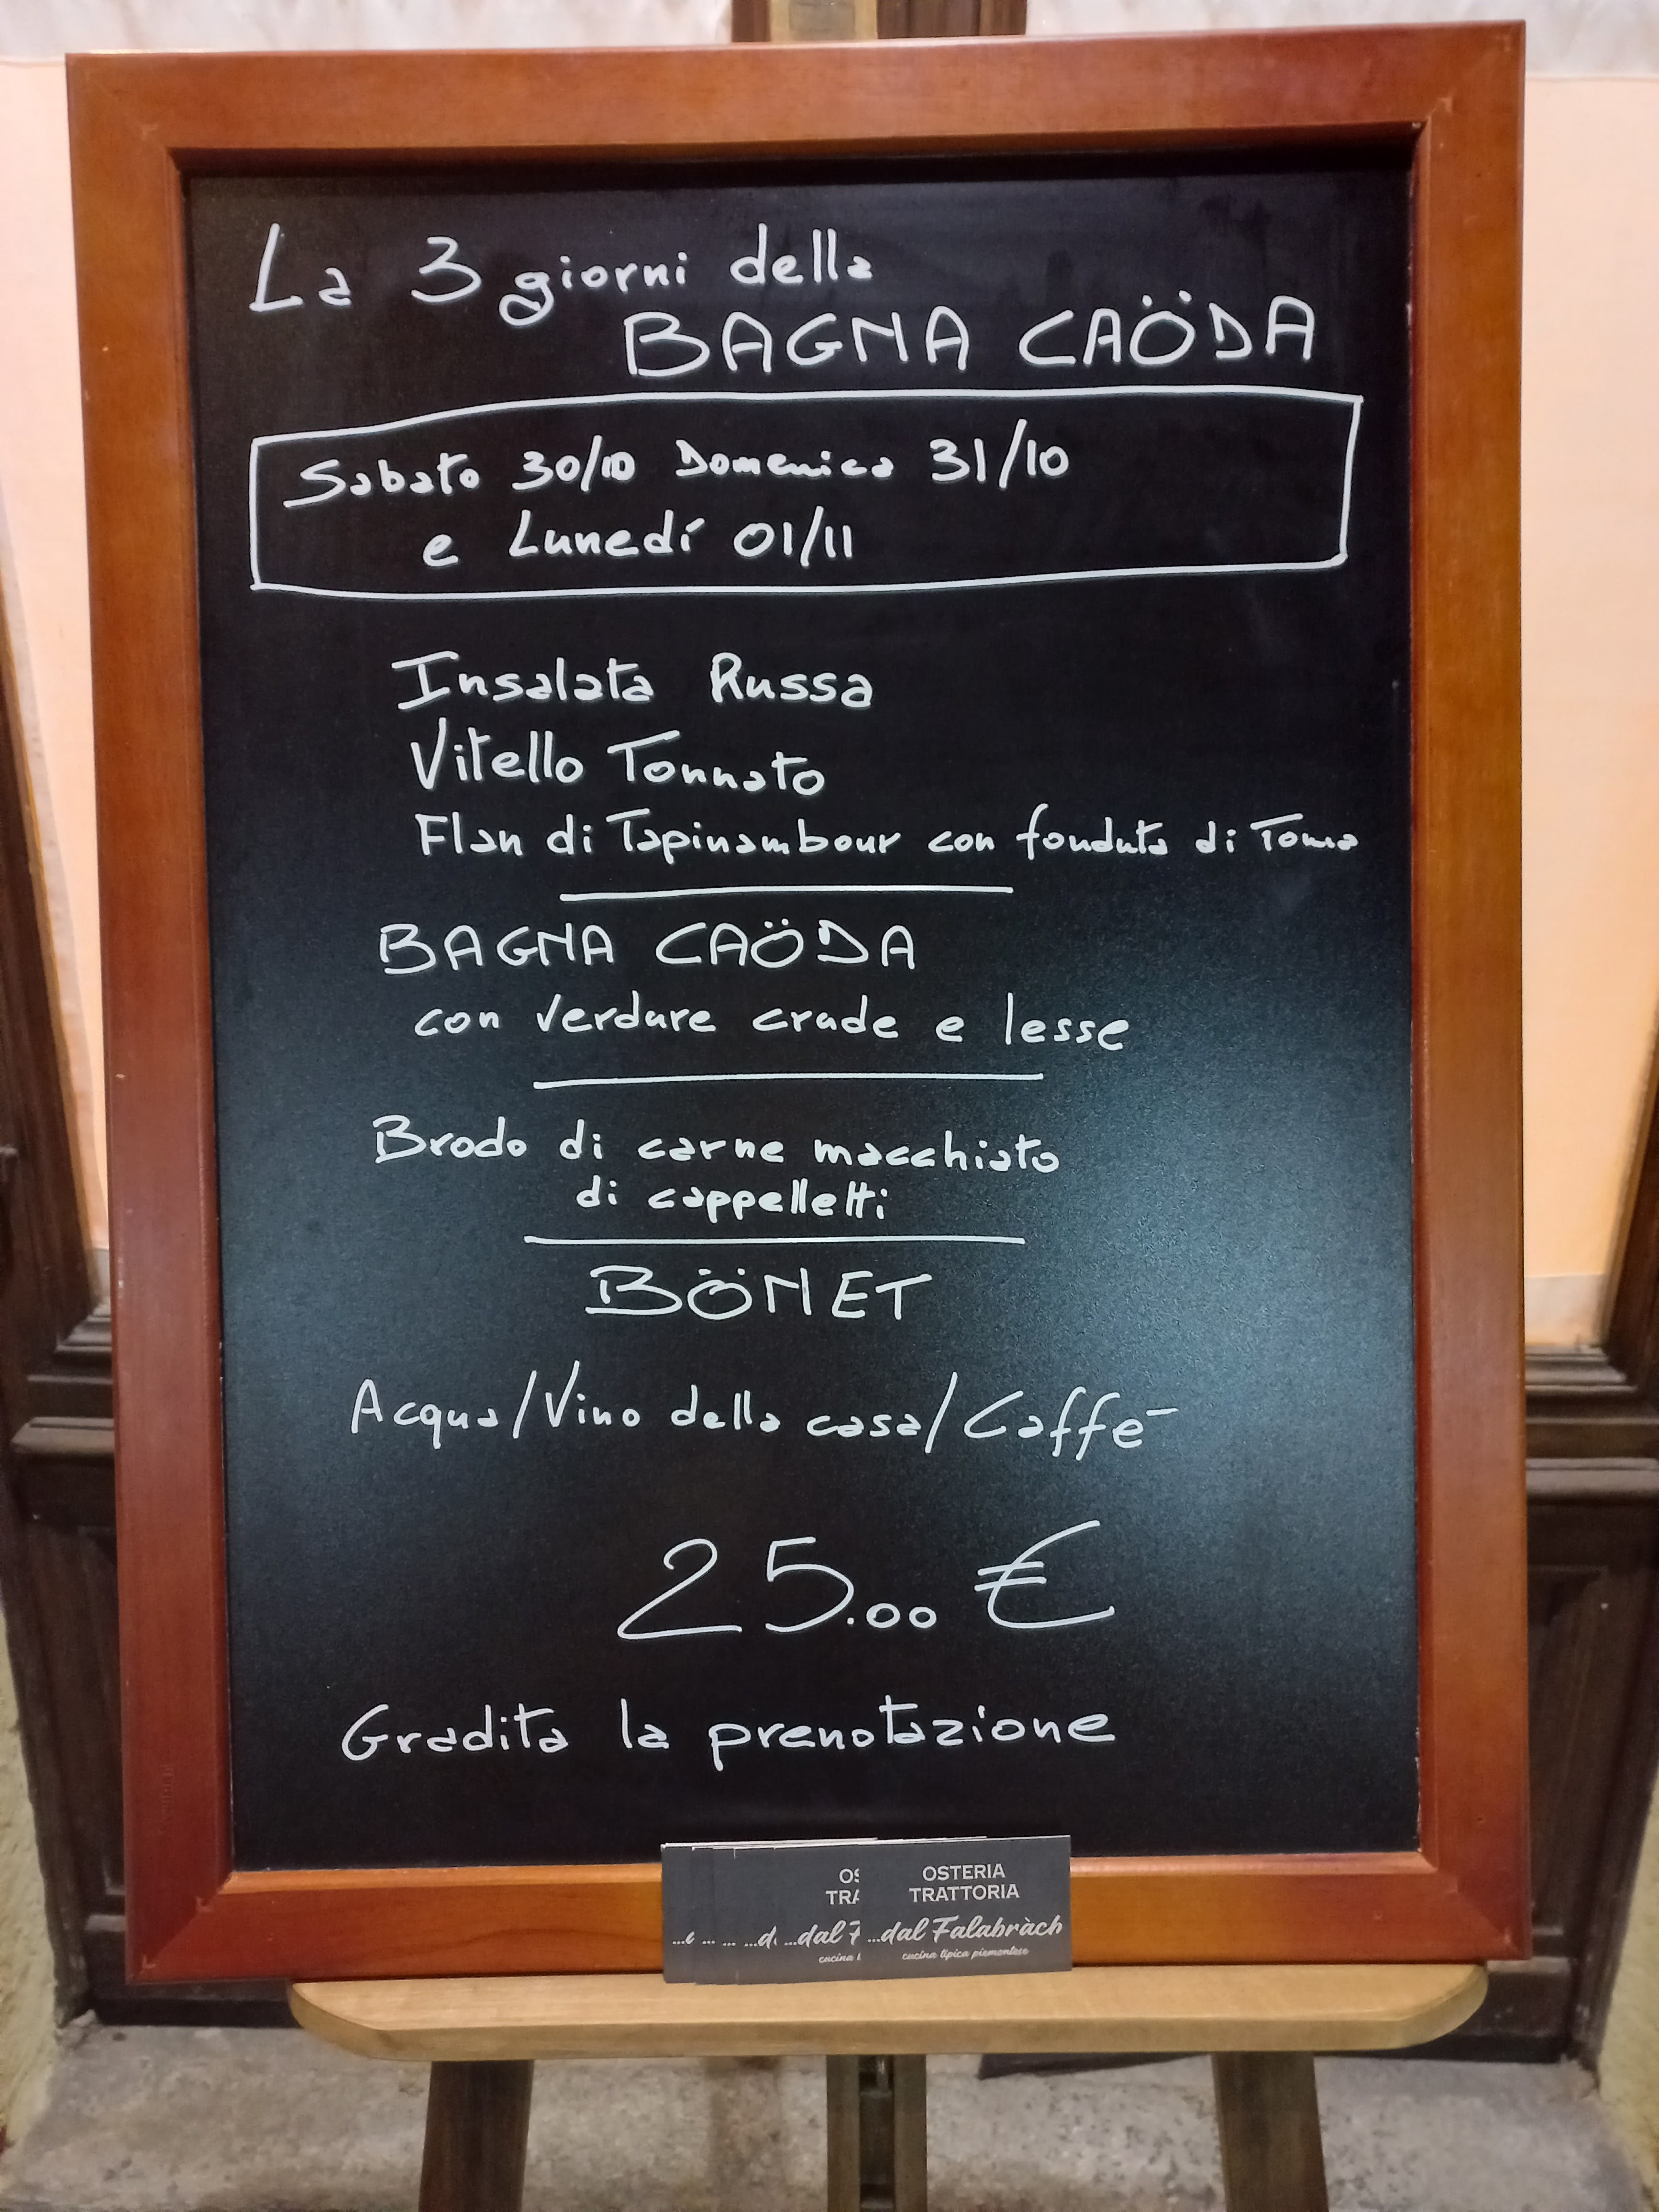 La 3 giorni della
BAGNA CAÖDA
Sabato 30/10 Domenica 31/10
e Lunedí 01/11
Insalata Russa
Vitello Tonnato
Flan di Tapinambour con fonduta di Toma
BAGNA CAÖDA
con verdure crude e lesse
Brodo di carne macchiato
di cappelletti
BÖNET
Acqua/Vino della casa/Caffè
25.00 €
Gradita la prenotazione
OSTERIA
TRATTORIA
...dal Falabràch
cucina tipica piemontese